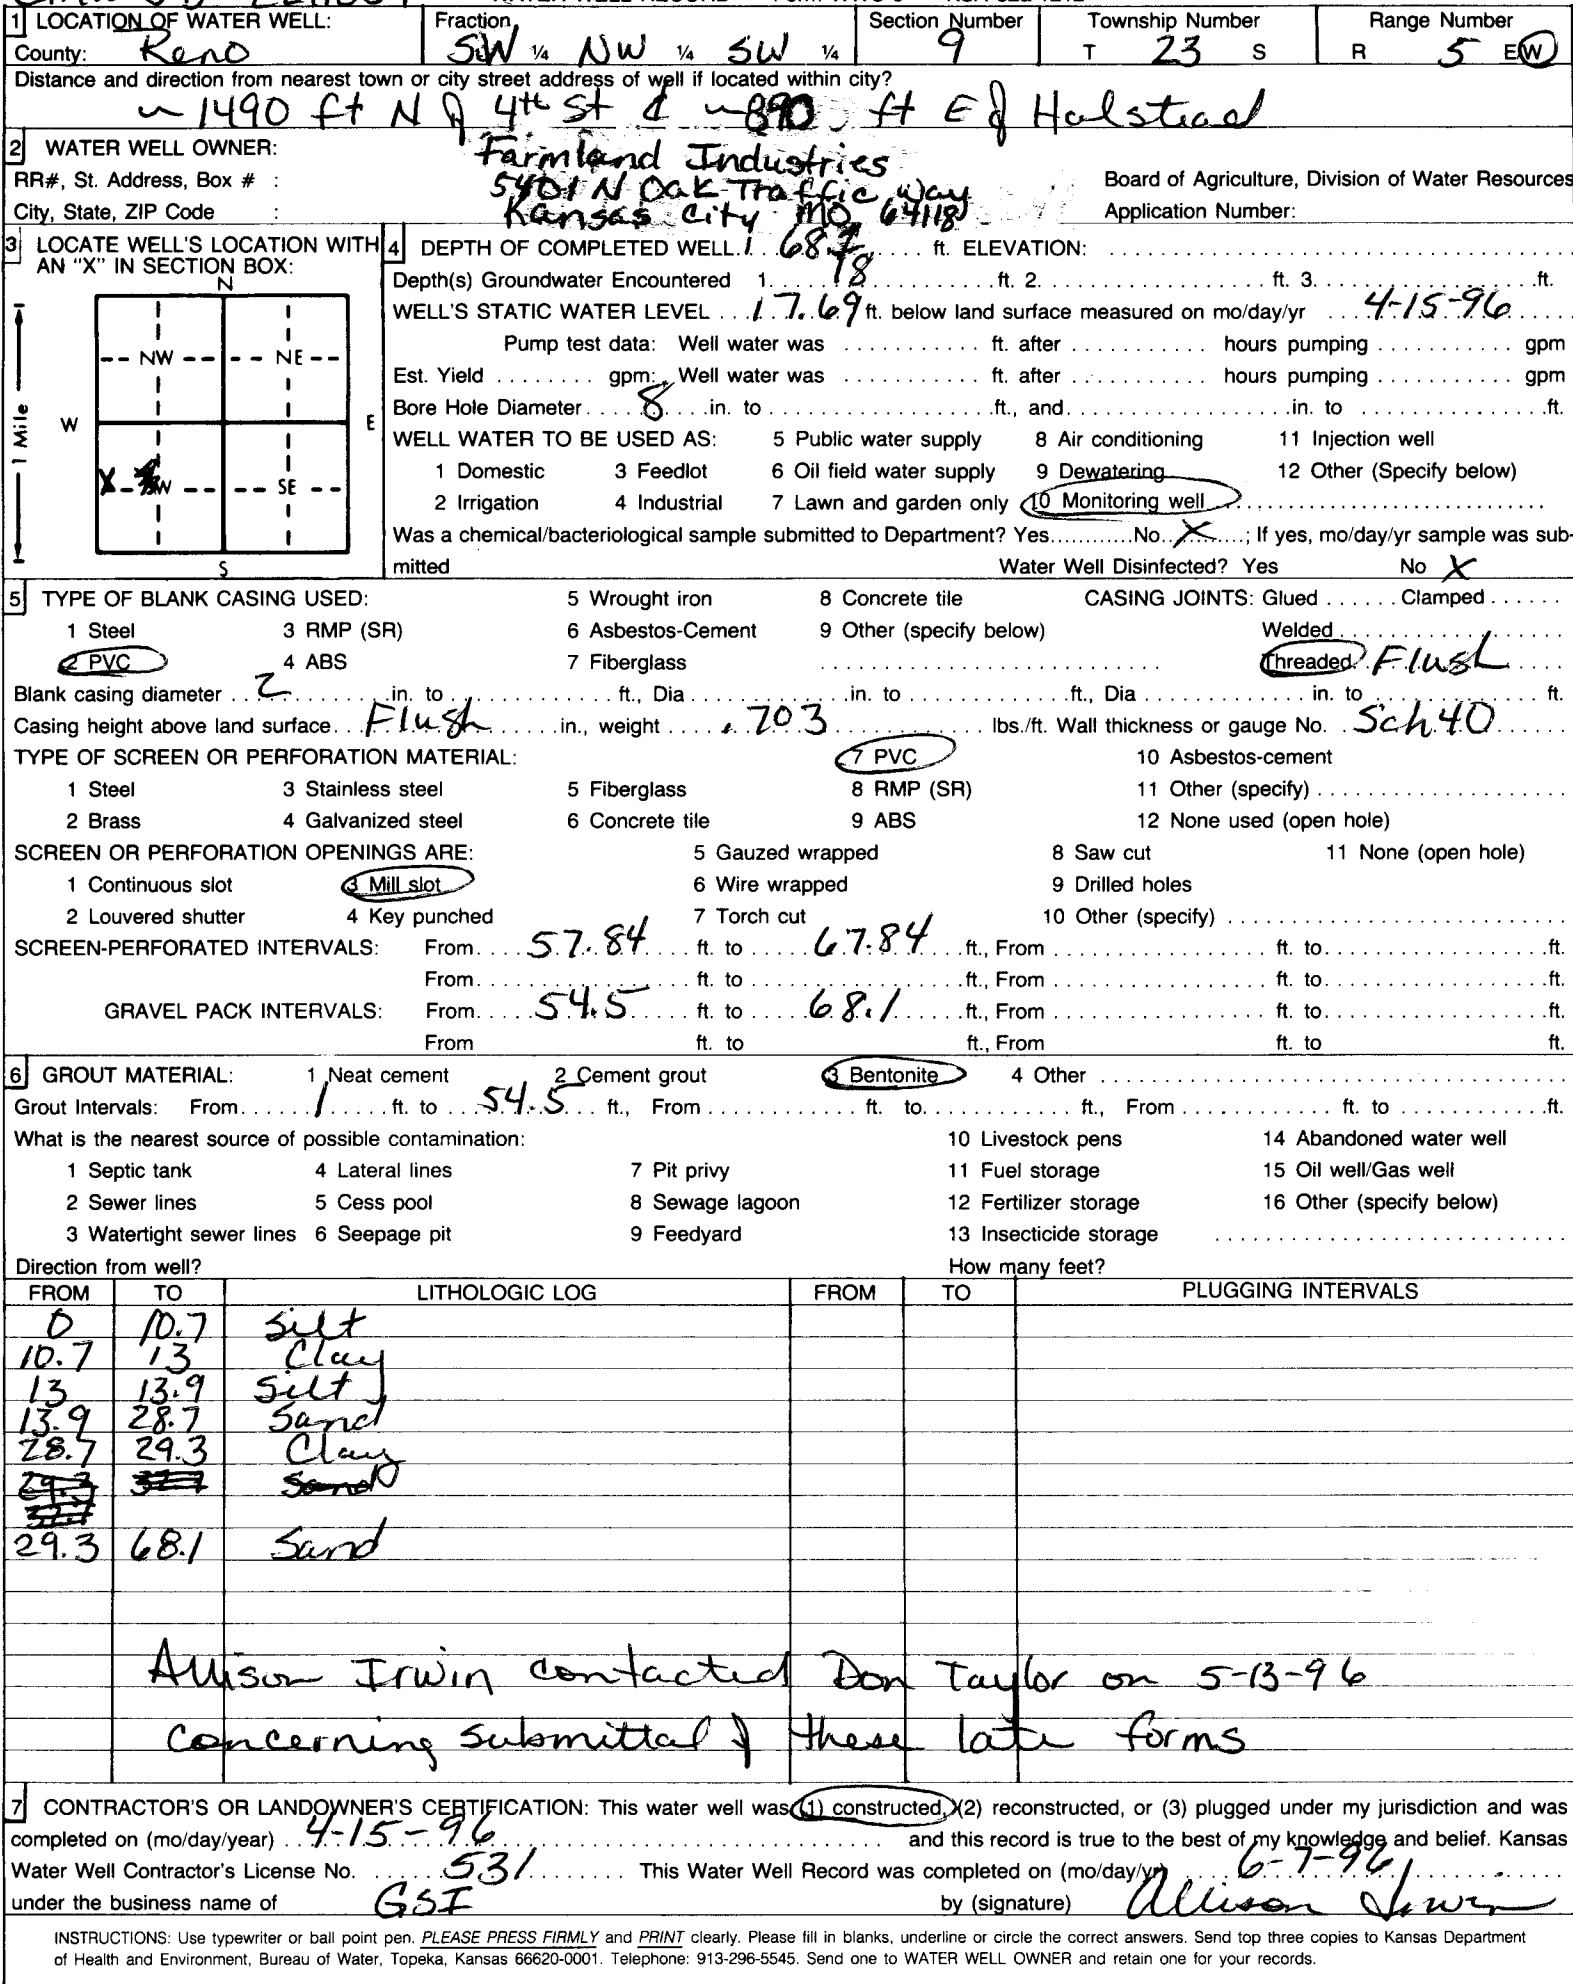 1 LOCATION OF WATER WELL: Fraction Section Number Township Number Range Number
County: Reno SW ¼ NW ¼ SW ¼ 9 T 23 S R 5 E(W)
Distance and direction from nearest town or city street address of well if located within city?
~ 1490 ft N of 4th St & ~890 ft E of Halstead
2 WATER WELL OWNER: Farmland Industries
RR#, St. Address, Box # : 5401 N Oak Traffic Way Board of Agriculture, Division of Water Resources
City, State, ZIP Code : Kansas City MO 64118 Application Number:
3 LOCATE WELL'S LOCATION WITH AN "X" IN SECTION BOX:
N
NW NE
W E
1 Mile
X SW SE
S
4 DEPTH OF COMPLETED WELL 68.1 ft. ELEVATION:
Depth(s) Groundwater Encountered 1. 18 ft. 2. ft. 3. ft.
WELL'S STATIC WATER LEVEL 17.69 ft. below land surface measured on mo/day/yr 4-15-96
Pump test data: Well water was ft. after hours pumping gpm
Est. Yield gpm: Well water was ft. after hours pumping gpm
Bore Hole Diameter 8 in. to ft., and in. to ft.
WELL WATER TO BE USED AS: 5 Public water supply 8 Air conditioning 11 Injection well
1 Domestic 3 Feedlot 6 Oil field water supply 9 Dewatering 12 Other (Specify below)
2 Irrigation 4 Industrial 7 Lawn and garden only 10 Monitoring well
Was a chemical/bacteriological sample submitted to Department? Yes No X ; If yes, mo/day/yr sample was sub-
mitted Water Well Disinfected? Yes No X
5 TYPE OF BLANK CASING USED: 5 Wrought iron 8 Concrete tile CASING JOINTS: Glued Clamped
1 Steel 3 RMP (SR) 6 Asbestos-Cement 9 Other (specify below) Welded
2 PVC 4 ABS 7 Fiberglass Threaded Flush
Blank casing diameter 2 in. to ft., Dia in. to ft., Dia in. to ft.
Casing height above land surface Flush in., weight .703 lbs./ft. Wall thickness or gauge No. Sch 40
TYPE OF SCREEN OR PERFORATION MATERIAL: 7 PVC 10 Asbestos-cement
1 Steel 3 Stainless steel 5 Fiberglass 8 RMP (SR) 11 Other (specify)
2 Brass 4 Galvanized steel 6 Concrete tile 9 ABS 12 None used (open hole)
SCREEN OR PERFORATION OPENINGS ARE: 5 Gauzed wrapped 8 Saw cut 11 None (open hole)
1 Continuous slot 3 Mill slot 6 Wire wrapped 9 Drilled holes
2 Louvered shutter 4 Key punched 7 Torch cut 10 Other (specify)
SCREEN-PERFORATED INTERVALS: From 57.84 ft. to 67.84 ft., From ft. to ft.
From ft. to ft., From ft. to ft.
GRAVEL PACK INTERVALS: From 54.5 ft. to 68.1 ft., From ft. to ft.
From ft. to ft., From ft. to ft.
6 GROUT MATERIAL: 1 Neat cement 2 Cement grout 3 Bentonite 4 Other
Grout Intervals: From 1 ft. to 54.5 ft., From ft. to ft., From ft. to ft.
What is the nearest source of possible contamination: 10 Livestock pens 14 Abandoned water well
1 Septic tank 4 Lateral lines 7 Pit privy 11 Fuel storage 15 Oil well/Gas well
2 Sewer lines 5 Cess pool 8 Sewage lagoon 12 Fertilizer storage 16 Other (specify below)
3 Watertight sewer lines 6 Seepage pit 9 Feedyard 13 Insecticide storage
Direction from well? How many feet?
FROM TO LITHOLOGIC LOG FROM TO PLUGGING INTERVALS
0 10.7 Silt
10.7 13 Clay
13 13.9 Silt
13.9 28.7 Sand
28.7 29.3 Clay
29.3 68.1 Sand
Allison Irwin contacted Don Taylor on 5-13-96
concerning submittal of these late forms
7 CONTRACTOR'S OR LANDOWNER'S CERTIFICATION: This water well was (1) constructed, (2) reconstructed, or (3) plugged under my jurisdiction and was
completed on (mo/day/year) 4-15-96 and this record is true to the best of my knowledge and belief. Kansas
Water Well Contractor's License No. 531 This Water Well Record was completed on (mo/day/yr) 6-7-96
under the business name of GSI by (signature) Allison Irwin
INSTRUCTIONS: Use typewriter or ball point pen. PLEASE PRESS FIRMLY and PRINT clearly. Please fill in blanks, underline or circle the correct answers. Send top three copies to Kansas Department
of Health and Environment, Bureau of Water, Topeka, Kansas 66620-0001. Telephone: 913-296-5545. Send one to WATER WELL OWNER and retain one for your records.